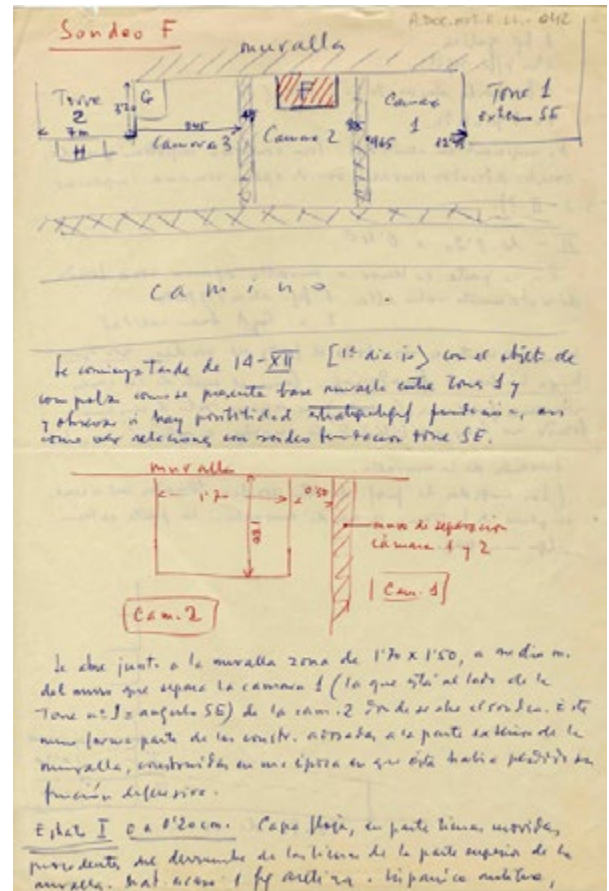 A.DOC.
042
Sondeo F
muralla
Torre
2
7m
G
H
F
945
Camara 3
Camara 2
Camara
1
Torre 1
extremo SE
camino
Se comienza tarde de 14-XII [1er dia] con el objeto de
comprobar como se presenta base muralla entre Torre 1 y
y observar si hay posibilidad fundación, asi
como ver relaciones con sondeo fundacion torre SE.
muralla
1'70
0'50
muro de separacion
cámara 1 y 2
Cam. 1
Cam. 2
Se abre junto a la muralla zona de 1'70 x 1'50, a medio m.
del muro que separa la camara 1 (la que está al lado de la
Torre nº 1 = angulo SE) de la cam. 2 donde se abre el sondeo. Este
muro forma parte de las constr. adosadas a la parte exterior de la
muralla, construidas en una época en que ésta habia perdido su
función defensiva.
Estrato I 0 a 0'20 cm. Capa floja, en parte tierras movidas,
procedentes del derrumbe de las tierras de la parte superior de la
muralla. Mat. escaso 1 fg